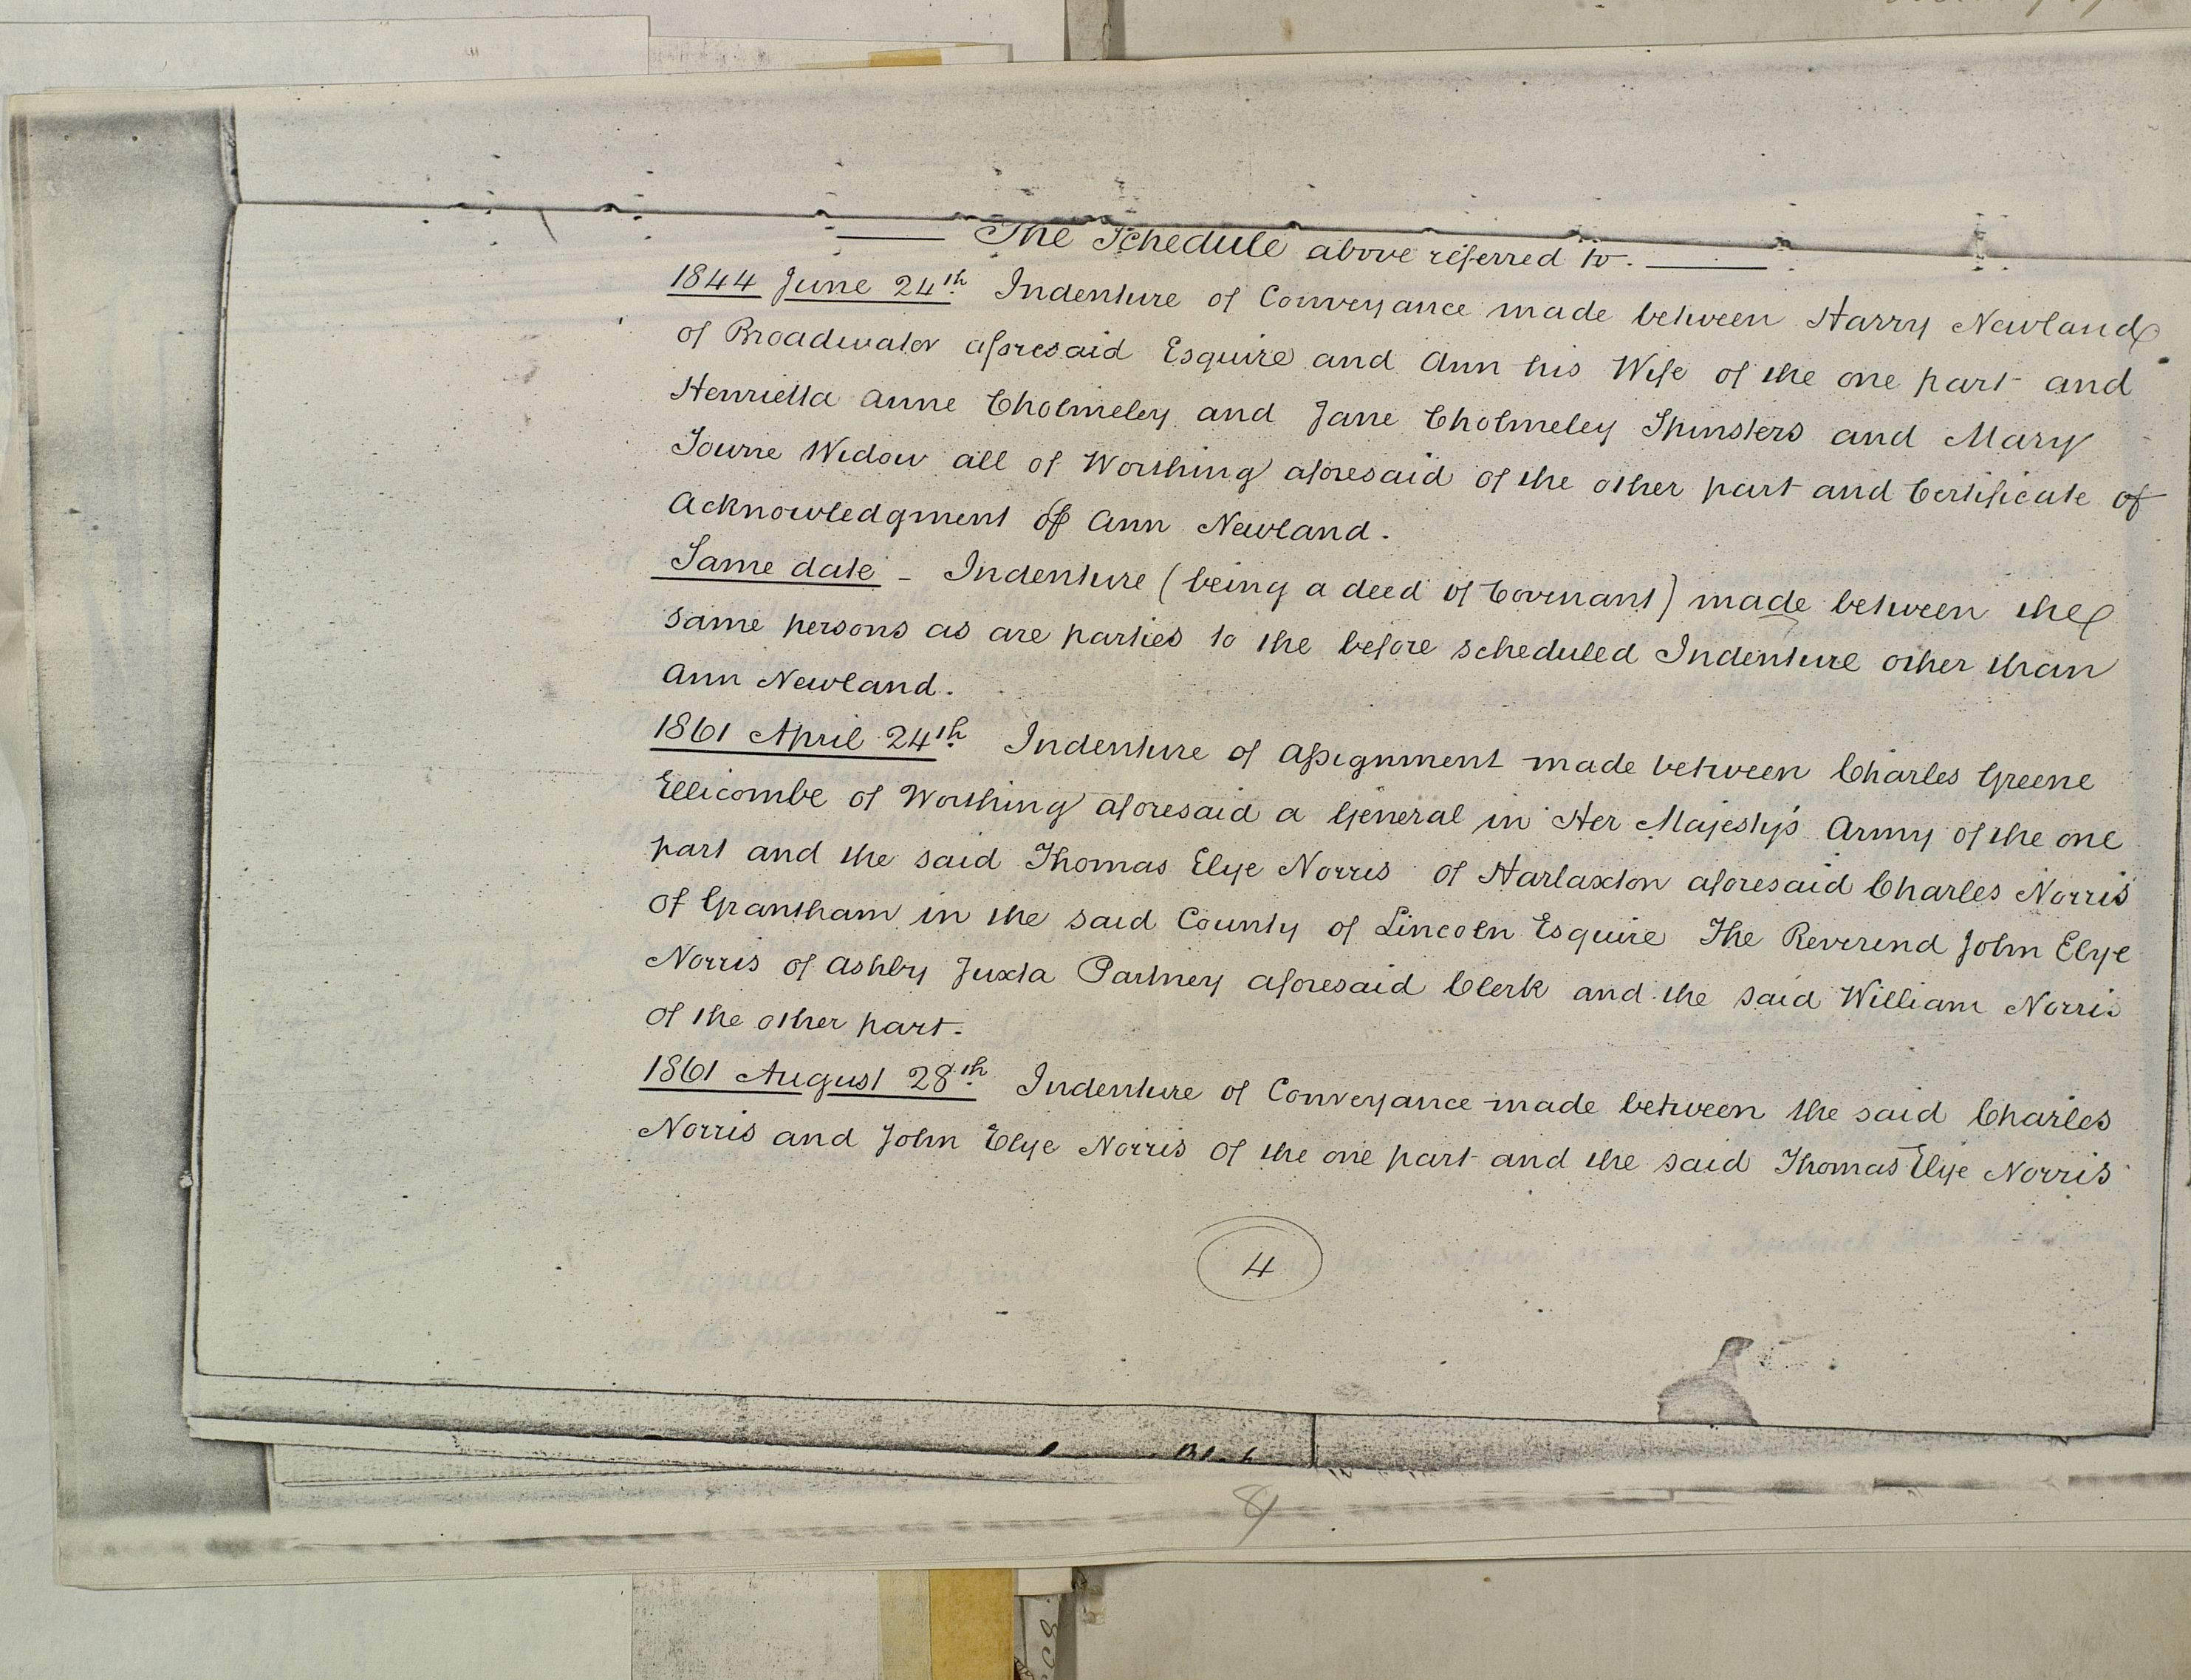 The Schedule above referred to.
1844 June 24th. Indenture of Conveyance made between Harry Newland
of Broadwater aforesaid Esquire and Ann his Wife of the one part and
Henrietta Anne Cholmeley and Jane Cholmeley Spinsters and Mary
Towne Widow all of Worthing aforesaid of the other part and Certificate of
Acknowledgment of Ann Newland.
Same date - Indenture (being a deed of Covenant) made between the
same persons as are parties to the before scheduled Indenture other than
Ann Newland.
1861 April 24th. Indenture of Assignment made between Charles Greene
Ellicombe of Worthing aforesaid a General in Her Majesty's Army of the one
part and the said Thomas Elye Norris of Harlaxton aforesaid Charles Norris
of Grantham in the said County of Lincoln Esquire The Reverend John Elye
Norris of Ashby Juxta Partney aforesaid Clerk and the said William Norris
of the other part.
1861 August 28th. Indenture of Conveyance made between the said Charles
Norris and John Elye Norris of the one part and the said Thomas Elye Norris
4